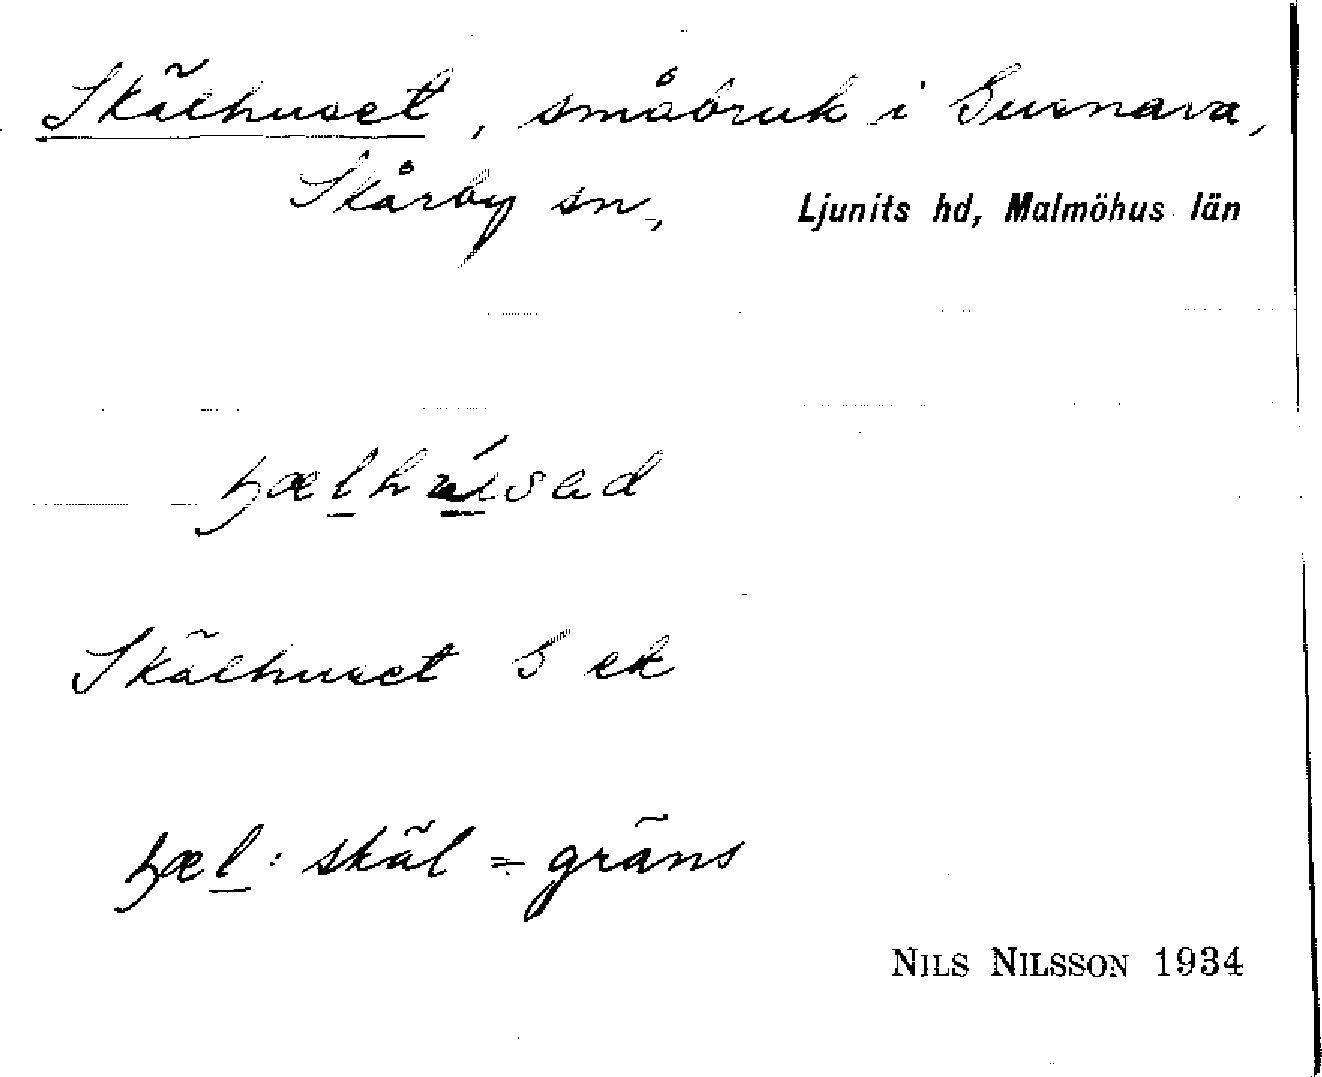 Skälhuset, småbruk i Gusnava,
Skårby sn, Ljunits hd, Malmöhus län
Skälhuset 5 ek
: skäl = gräns
NILS NILSSON 1934